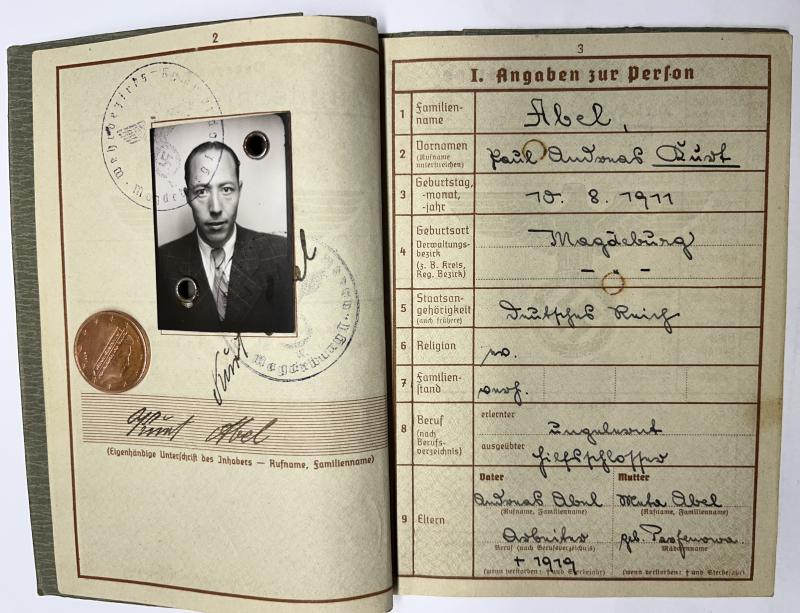 2
Kurt Abel
Magdeburg
Kurt Abel
(Eigenhändige Unterschrift des Inhabers — Rufname, Familienname)
3
I. Angaben zur Person
1 Familien-
name
Abel,
2 Vornamen
(Rufname
unterstreichen)
Paul Andreas Kurt
3 Geburtstag,
-monat,
-jahr
10. 8. 1911
4 Geburtsort
Verwaltungs-
bezirk
(z. B. Kreis,
Reg. Bezirk)
Magdeburg
- " -
5 Staatsan-
gehörigkeit
(auch frühere)
Deutsches Reich
6 Religion
ev.
7 Familien-
stand
verh.
8 Beruf
(nach
Berufs-
verzeichnis)
erlernter
ungelernt
ausgeübter
Hilfsschlosser
9 Eltern
Vater
Mutter
Andreas Abel
Meta Abel
(Rufname, Familienname)
(Rufname, Familienname)
Arbeiter
geb.
Beruf (nach Berufsverzeichnis)
Mädchenname
† 1919
(wenn verstorben: † und Sterbejahr)
(wenn verstorben: † und Sterbejahr)